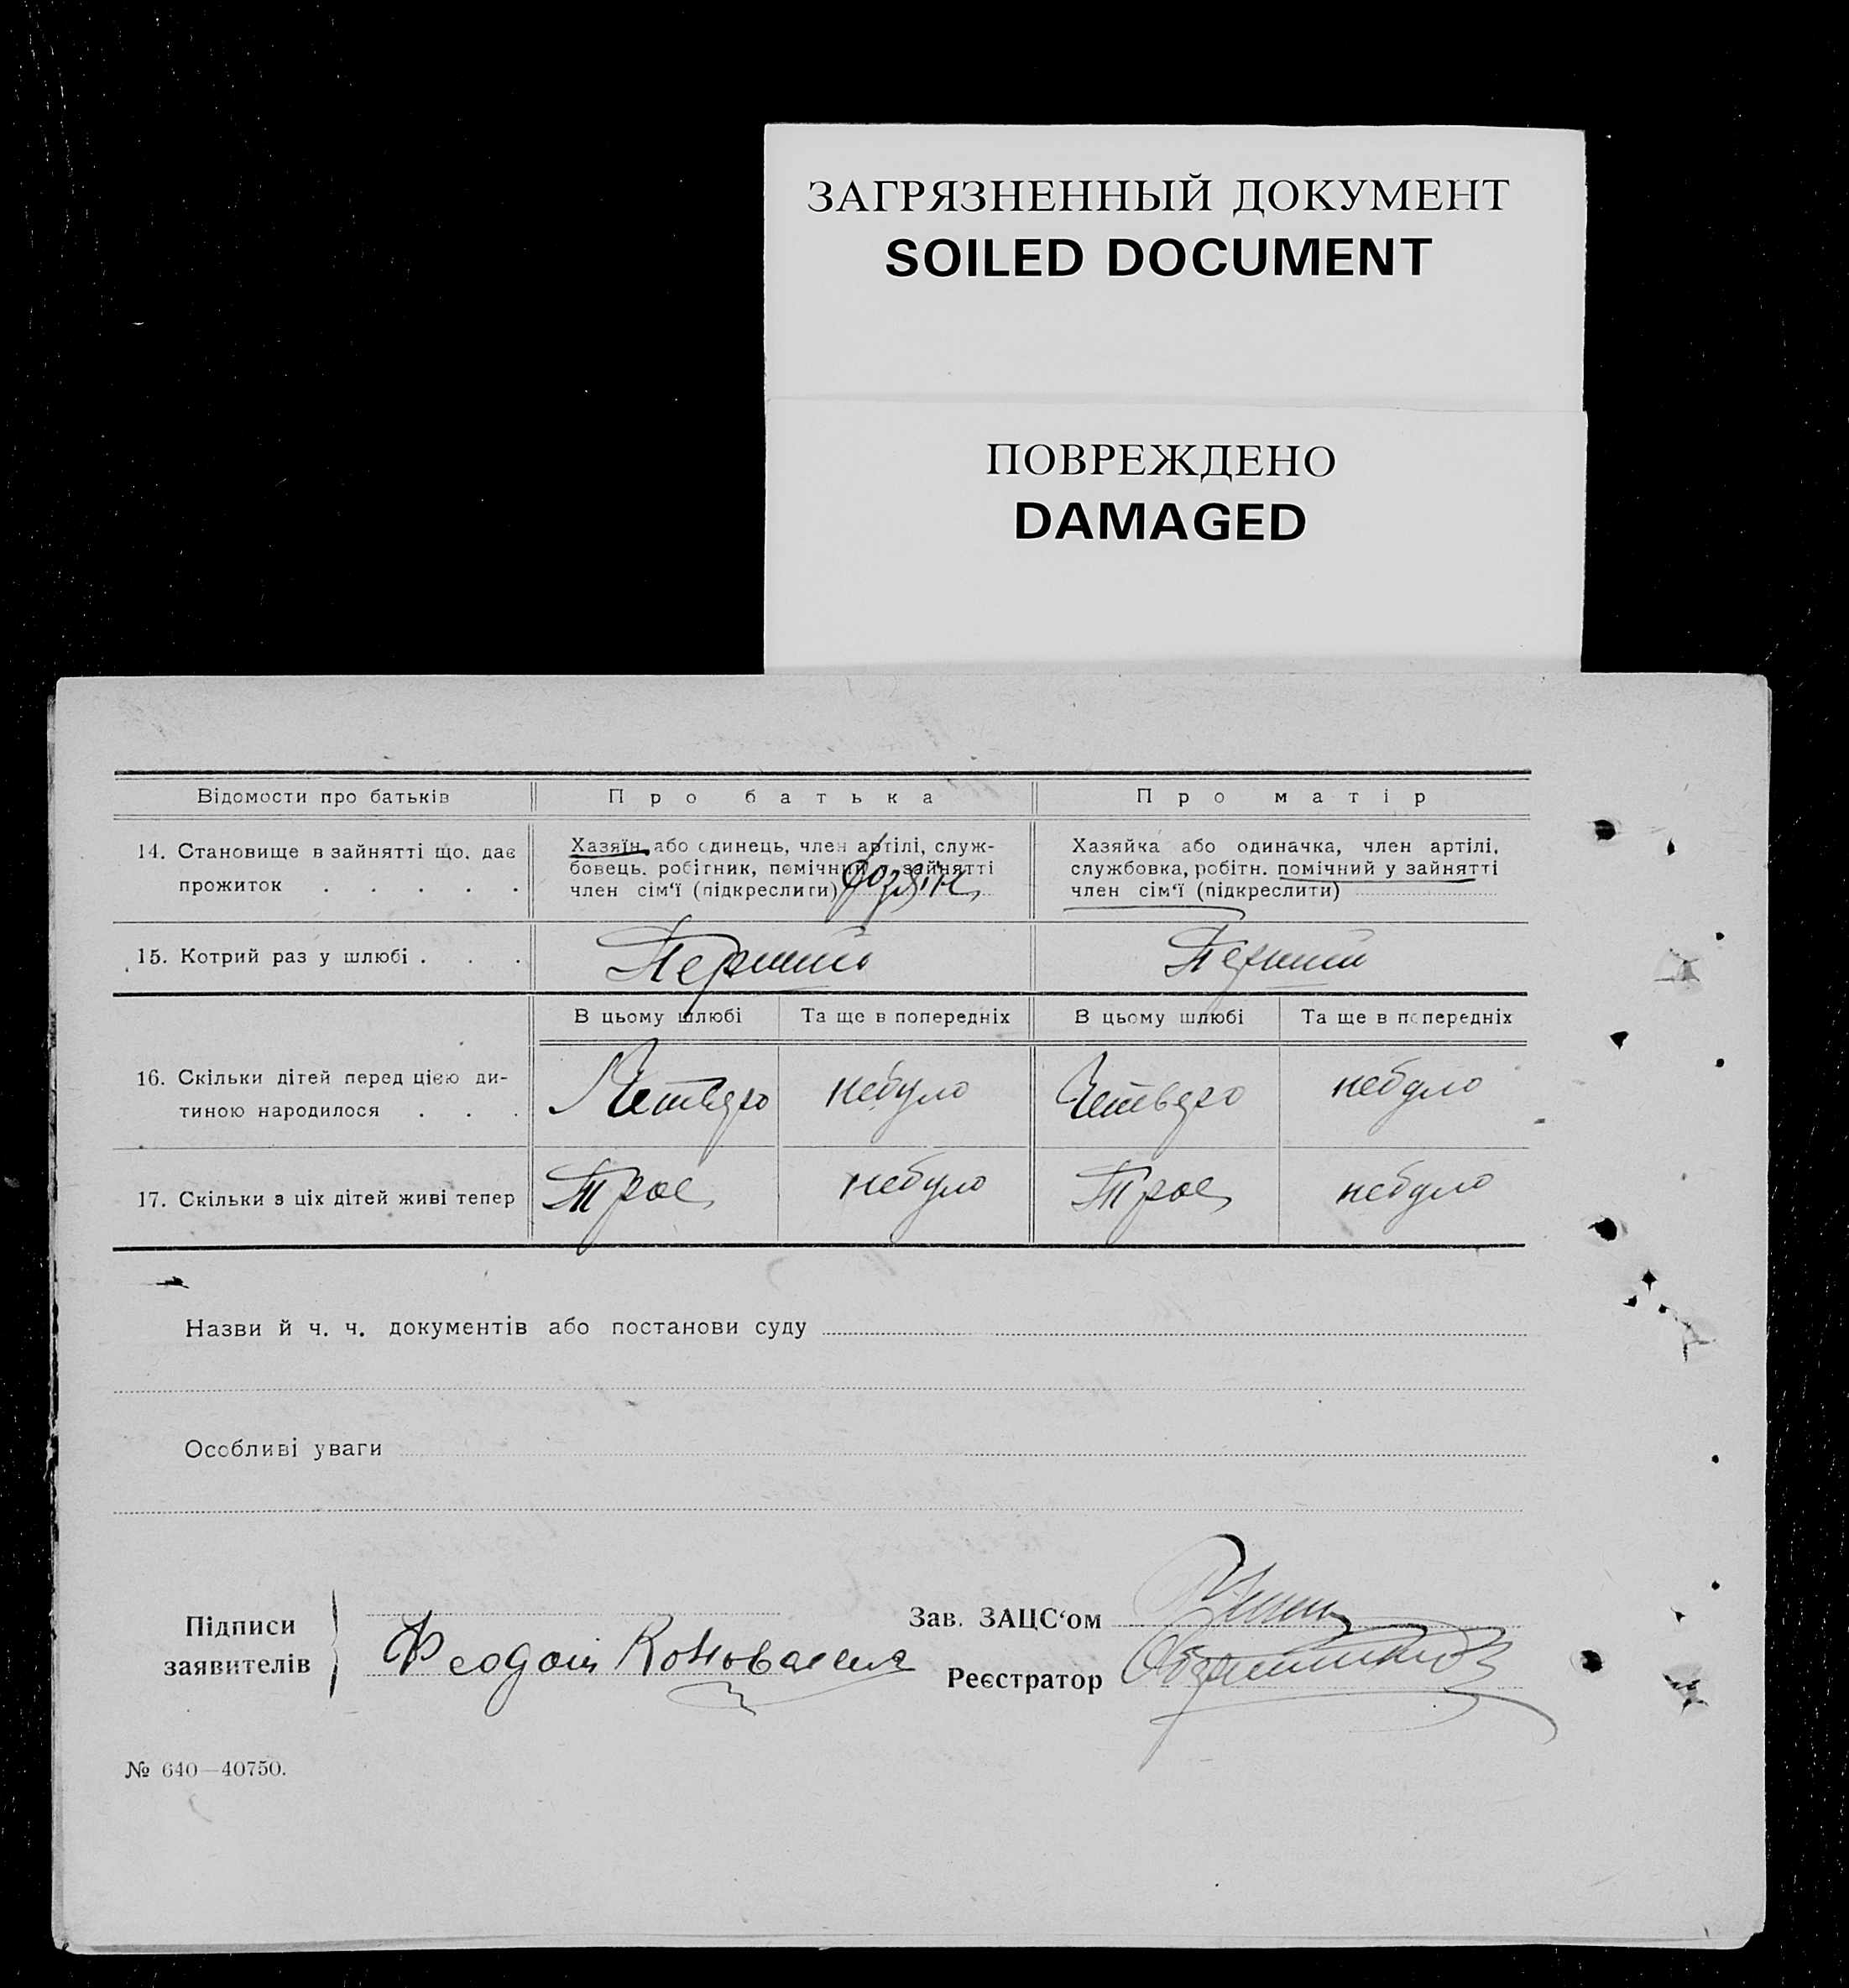 ЗАГРЯЗНЕННЫЙ ДОКУМЕНТ
SOILED DOCUMENT
ПОВРЕЖДЕНО
DAMAGED
Відомости про батьків Про батька Про матір
14. Становище в зайнятті що, дає
прожиток . . . . .
Хазяїн, або одинець, член артілі, служ-
бовець, робітник, помічний у зайнятті
член сім'ї (підкреслити) Хозяїн
Хазяйка або одиначка, член артілі,
службовка, робітн. помічний у зайнятті
член сім'ї (підкреслити)
15. Котрий раз у шлюбі . . . Перший Перший
В цьому шлюбі Та ще в попередніх В цьому шлюбі Та ще в попередніх
16. Скільки дітей перед цією ди-
тиною народилося . . . Четверо небуло Четверо небуло
17. Скільки з ціх дітей живі тепер Трое небуло Трое небуло
Назви й ч. ч. документів або постанови суду
Особливі уваги
Підписи
заявителів
Феодосій
Зав. ЗАЦС'ом
Реєстратор
№ 640—40750.